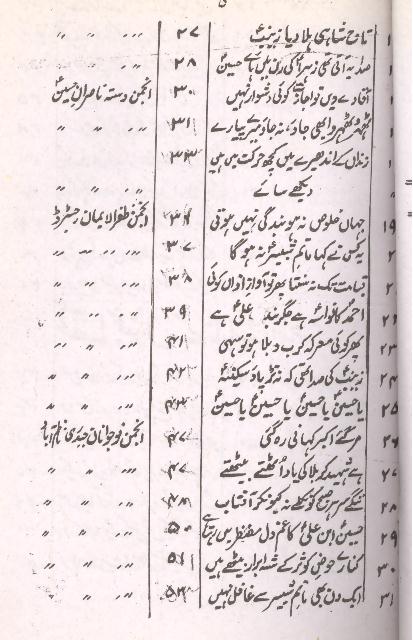 ۱ تاج شاہی ہلا دیا زینبؑ ۲۷ " " "
۱ صدا یہ آتی تھی زہراؑ کی رن میں ہے حسینؑ ۲۸ " " "
۱ آقا دے دیں تو اجازت کوئی دشوار نہیں ۳۰ انجمن دستہ ناصران حسینؑ
۱ ٹھہرو ٹھہرو ابھی جاؤ، نہ جاؤ میرے پیارے ۳۱ " " "
۱ زنداں کے اندھیرے میں کچھ حرکت میں ہیں ۳۳ " " "
دیکھے سائے " " "
۱۹ جہاں خلوص نہ ہو بندگی نہیں ہوتی ۳۶ انجمن ظفر الایمان رجسٹرڈ
۲ یہ کس نے کہا ماتم شبیرؑ نہ ہوگا ۳۷ " " "
۲ قیامت تک نہ سنتا پھر تو آواز اذاں کوئی ۳۸ " " "
۲۲ احمدؐ کا نواسہ ہے جگر بند علیؑ ہے ۳۹ " " "
۲۳ پھر کوئی معرکہ کرب و بلا ہو تو سہی ۴۱ " " "
۲۴ زینبؑ کی صدا تھی کہ نہ فریاد سکینہؑ ۴۲ " " "
۲۵ یا حسینؑ یا حسینؑ یا حسینؑ یا حسینؑ ۴۴ " " "
۲۶ مر گئے اکبر کہانی رہ گئی ۴۷ انجمن نوجوانان حیدری
۲۷ ہے شہید کربلا کی یاد اٹھتے بیٹھتے ۴۷ " " "
۲۸ ننگے سر صبح کو نکلے نہ کیونکر آفتاب ۴۸ " " "
۲۹ حسینؑ ابن علیؑ کا غم دل مضطر میں رہتا ہے ۵۰ " " "
۳۰ کنارے حوض کوثر کے شہ ابرار بیٹھے ہیں ۵۱ " " "
۳۱ ایک دن بھی ماتم شبیر سے غافل نہیں ۵۳ " " "